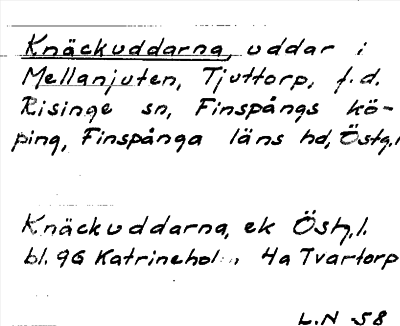 Knäckuddarna, uddar i
Mellanjuten, Tjuttorp, f.d.
Risinge sn, Finspångs kö-
ping, Finspånga läns hd, Östg.l
Knäckuddarna, ek Östg.l.
bl. 9G Katrineholm, 4a Tvartorp
L.N -58